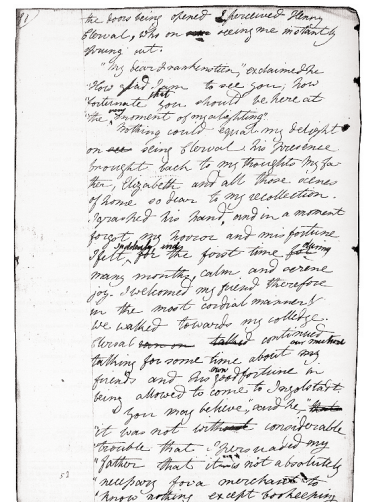 91
the doors being opened I perceived Henry
Clerval, who on seeing me instantly
sprung out.
"My dear Frankenstein," exclaimed he
"How glad I am to see you; how
fortunate that you should be here at
"the very moment of my alighting."
Nothing could equal my delight
on seeing Clerval his presence
brought back to my thoughts my fa-
ther, Elizabeth and all those scenes
of home so dear to my recollection.
I grasped his hand, and in a moment
forgot my horror and misfortune
I felt suddenly, and for the first time during
many months, calm and serene
joy. I welcomed my friend therefore
in the most cordial manner &
we walked towards my colledge.
Clerval continued
talking for some time about our mutual
friends and his own good fortune in
being allowed to come to Ingolstadt.
"You may believe," said he, "that
"it was not without considerable
"trouble that I persuaded my
"father that it was not absolutely
"necessary for a merchant to
"know nothing except bookkeeping